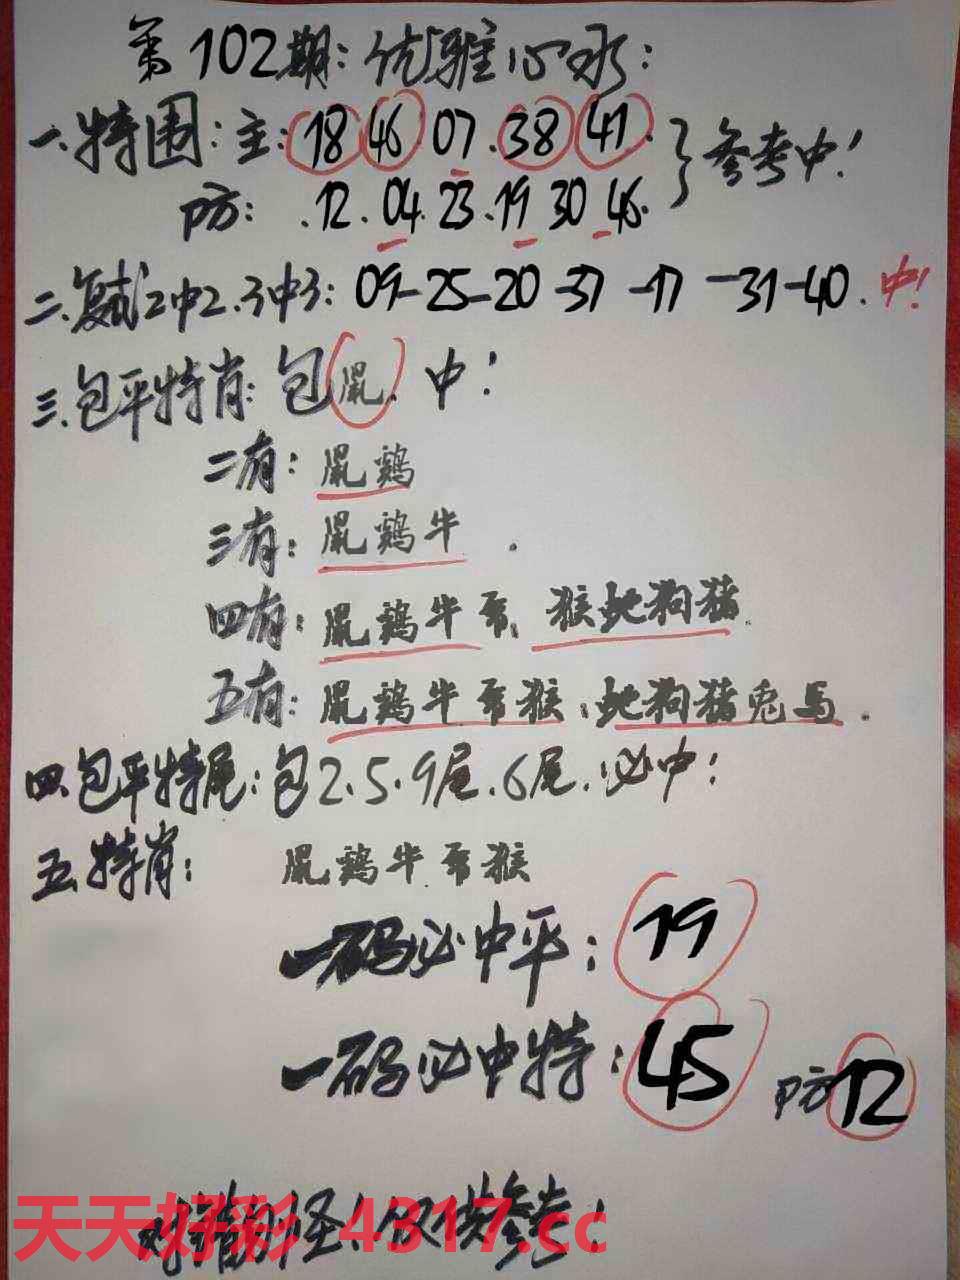 第102期：优雅心水：
一、特围：主：18 46 07.38 41. }参考中！
防：.12.04.23.19 30 46.
二、复试2中2.3中3：09-25-20-37-17-31-40.中！
三、包平特肖：包鼠.中！
二有：鼠鸡
三有：鼠鸡牛.
四有：鼠鸡牛 猴蛇狗猪.
五有：鼠鸡牛 猴；蛇狗猪兔马.
四.包平特尾：包2.5.9尾.6尾.必中！
五、特肖：鼠鸡牛. 猴
一码必中平：19
一码必中特：45 防12
对错勿怪！仅供参考！
天天好彩 4317.cc